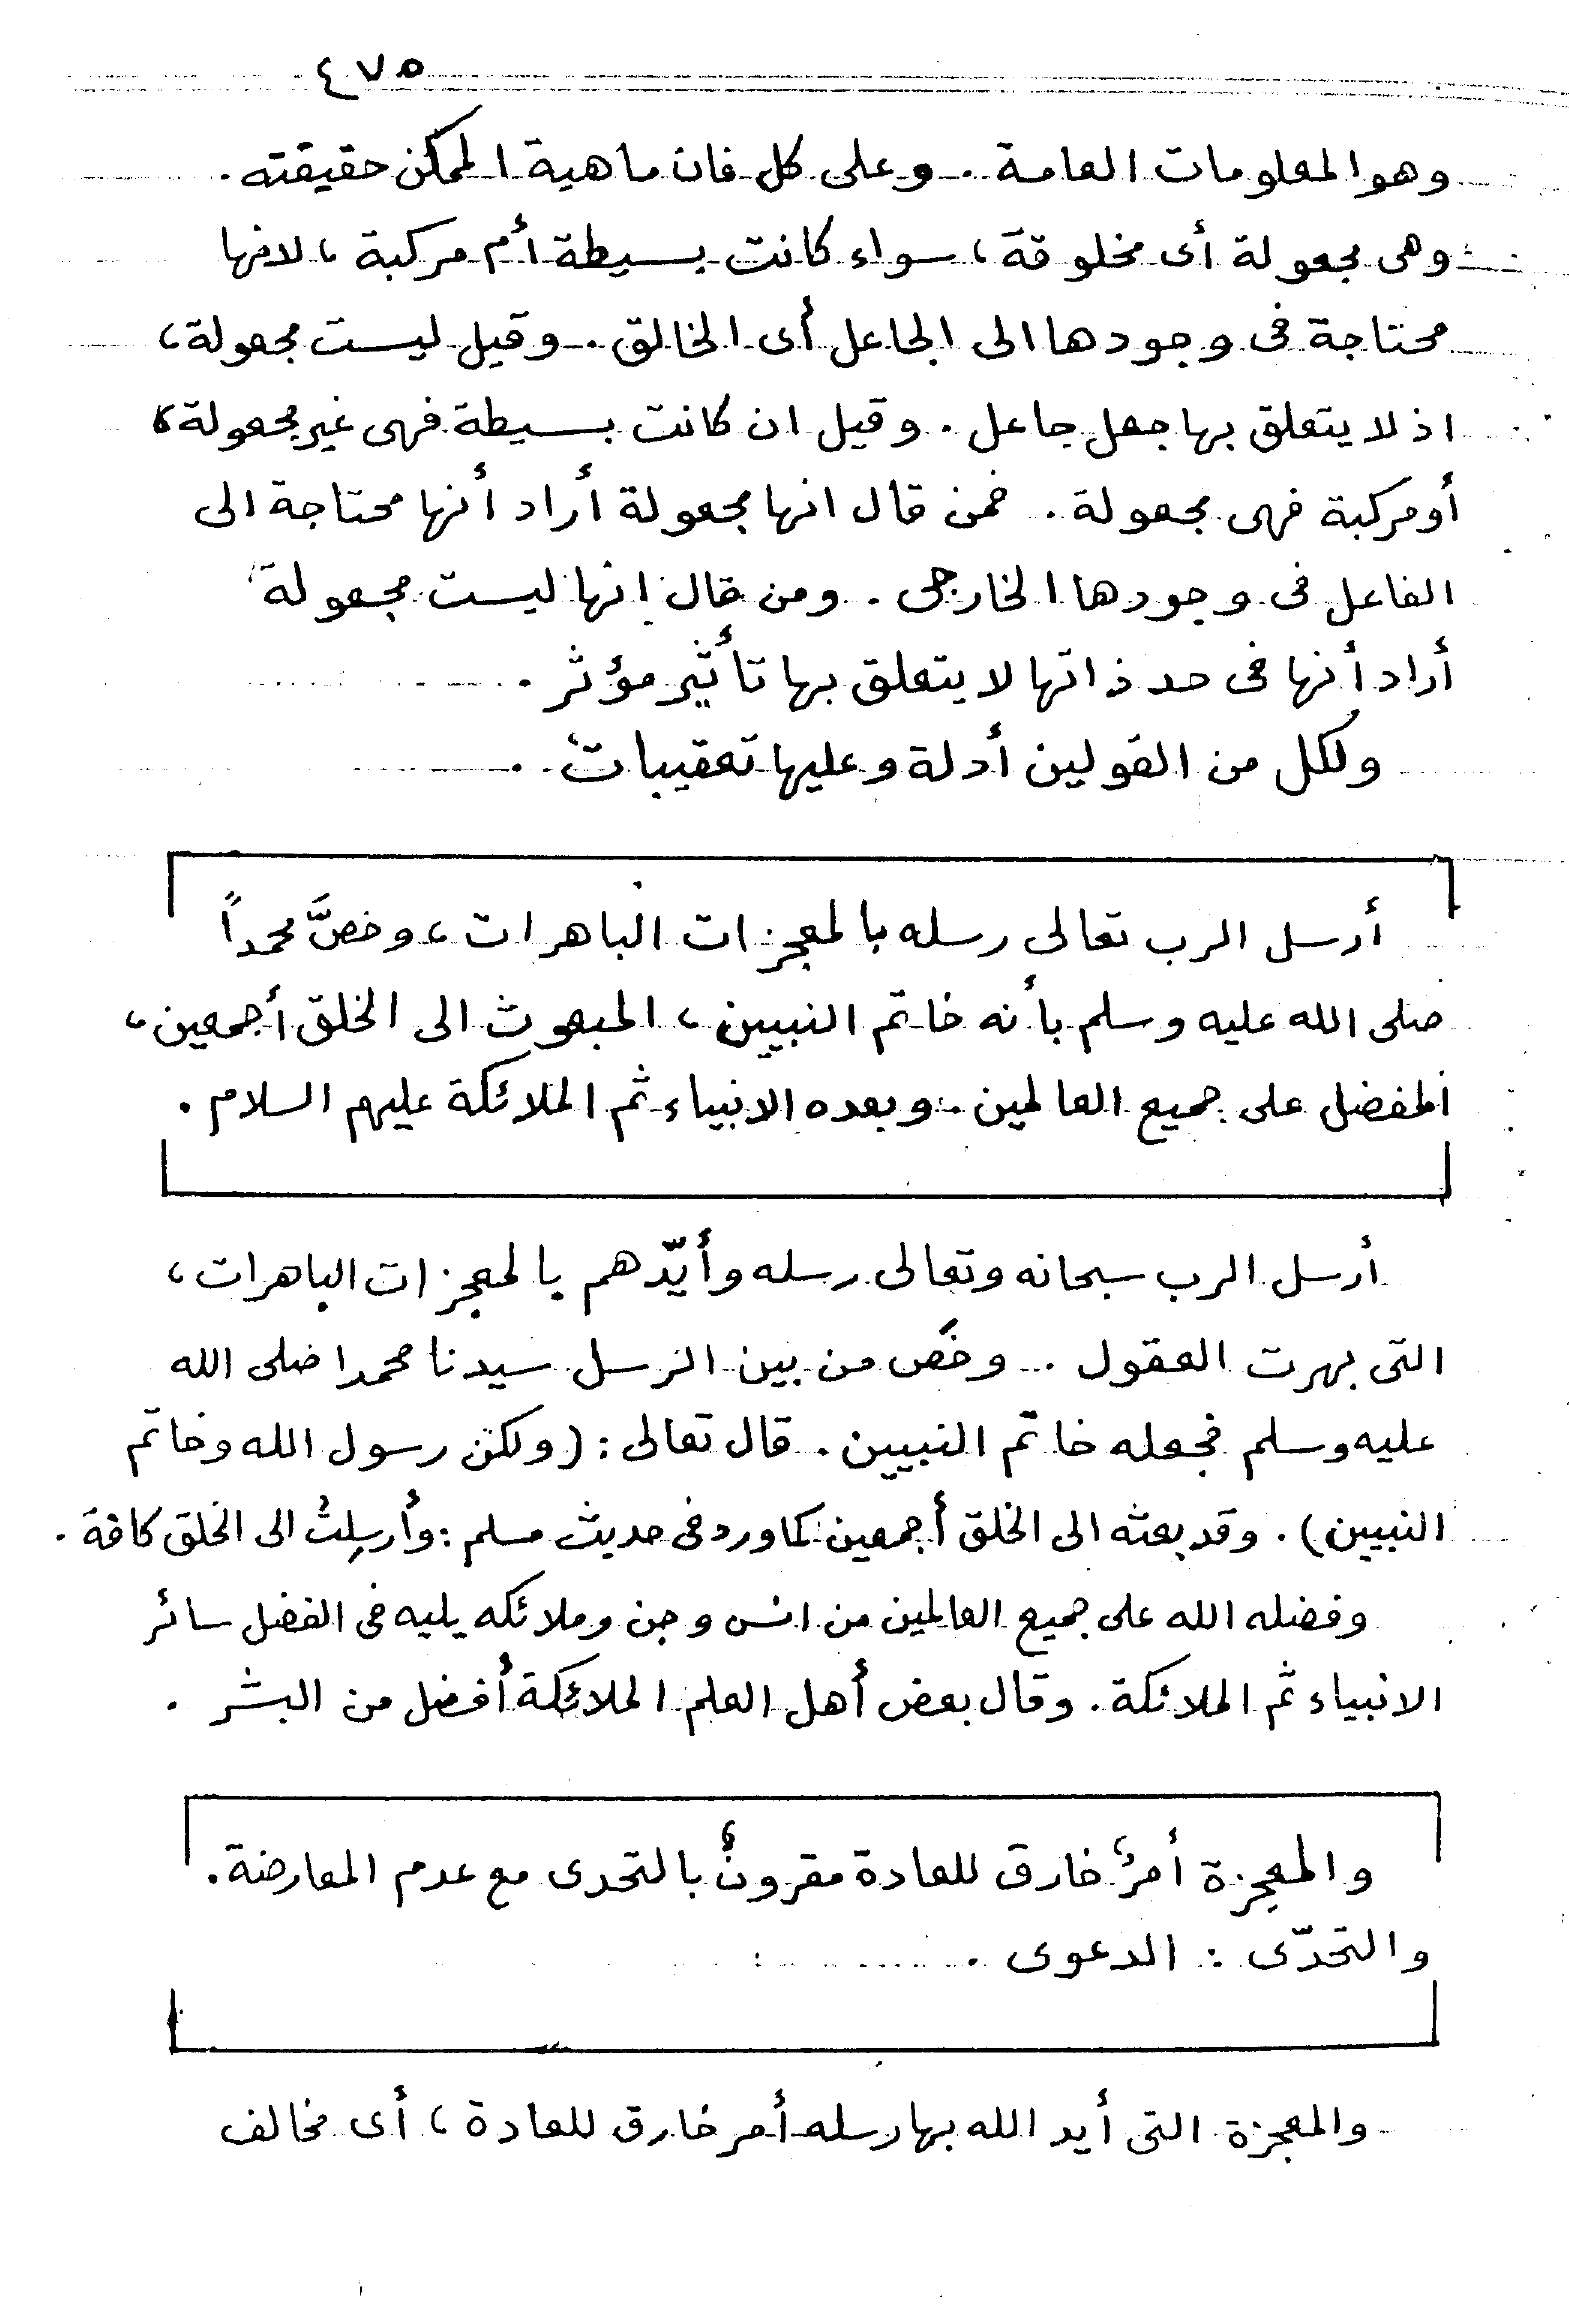 ٤٧٥
وهو المعلومات العامة . وعلى كل فان ماهية الممكن حقيقته .
وهى مجعولة أى مخلوقة ، سواء كانت بسيطة أم مركبة ، لانها
محتاجة فى وجودها الى الجاعل أى الخالق . وقيل ليست مجعولة ،
اذ لا يتعلق بها جعل جاعل . وقيل ان كانت بسيطة فهى غير مجعولة ،
أو مركبة فهى مجعولة . فمن قال انها مجعولة أراد أنها محتاجة الى
الفاعل فى وجودها الخارجى . ومن قال إنها ليست مجعولة
أراد أنها فى حد ذاتها لا يتعلق بها تأثير مؤثر .
ولكل من القولين أدلة وعليها تعقيبات .
أرسل الرب تعالى رسله بالمعجزات الباهرات ، وخصَّ محمداً
صلى الله عليه وسلم بأنه خاتم النبيين ، المبعوث الى الخلق أجمعين ،
المفضل على جميع العالمين . وبعده الانبياء ثم الملائكة عليهم السلام .
أرسل الرب سبحانه وتعالى رسله وأيّدهم بالمعجزات الباهرات ،
التى بهرت العقول . وخَص من بين الرسل سيدنا محمدا صلى الله
عليه وسلم فجعله خاتم النبيين . قال تعالى : (ولكن رسول الله وخاتم
النبيين) . وقد بعثه الى الخلق أجمعين كما ورد فى حديث مسلم : وأُرسِلتُ الى الخلق كافة .
وفضله الله على جميع العالمين من انس وجن وملائكه يليه فى الفضل سائر
الانبياء ثم الملائكة . وقال بعض أهل العلم الملائكة أفضل من البشر .
والمعجِزة أمرٌ خارق للعادة مقرونٌ بالتحدى مع عدم المعارضة .
والتحدّى : الدعوى .
والمعجزة التى أيد الله بها رسله أمر خارق للعادة ، أى مخالف